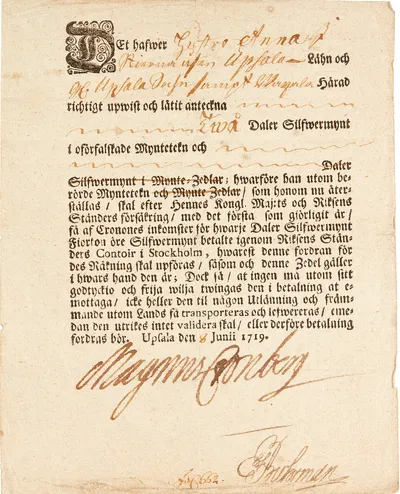 DEt hafwer Hustro Anna
Upsala Lähn och
Upsala Härad
richtigt upwist och låtit anteckna
Twå Daler Silfwermynt
i oförfalskade Myntetekn och
Daler
Silfwermynt i Mynte-Zedlar; hwarföre han utom be-
rörde Myntetekn och Mynte Zedlar/ som honom nu åter-
ställas/ skal efter Hennes Kongl. Maj:ts och Riksens
Ständers försäkring/ med det första som giörligit är/
få af Cronones inkomster för hwarje Daler Silfwermynt
Fiorton öre Silfwermynt betalte igenom Riksens Stän-
ders Contoir i Stockholm, hwarest denne fordran för
des Räkning skal upföras/ såsom och denne Zedel gäller
i hwars hand den är; Dock så/ at ingen må utom sitt
godtyckio och frija wilja twingas den i betalning at e-
mottaga/ icke heller den til någon Utlänning och främ-
mande utom Lands få transporteras och lefwereras/ eme-
dan den utrikes intet validera skal/ eller derföre betalning
fordras bör. Upsala den 8 Junii 1719.
Magnus Cronberg